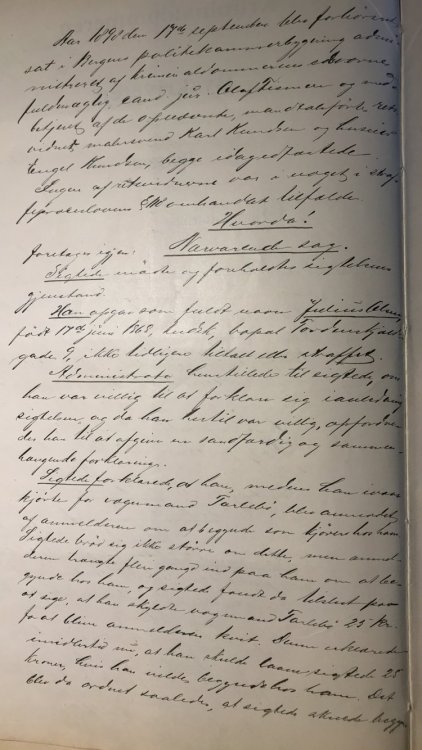 Aar 1898 den 17de september blev forhørsret
sat i Bergens politikammerbygning admi-
nistreret af kriminaldommerens edsvorne
fuldmægtig, cand. jur. Olaf med
betjent af de opnævnte, mandtalsførte rets-
vidner, Karl Knudsen og
Knudsen, begge idag edfæstede.
Ingen af retsvidnerne var i noget i straf-
feproceslovens § omhandlet tilfælde.
Hvorda!
Foretoges igjen: Nærværende sag.
Sigtede mødte og foreholdtes sigtelsens
gjenstand.
Han opgav som fuldt navn Julius
født 17de juni 1868, kusk, bopæl Tordenskjolds-
gade 9, ikke tidligere tiltalt eller straffet.
Administrator henstillede til sigtede, om
han var villig til at forklare sig i anledning
sigtelsen, og da han hertil var villig, opfordre-
des han til at afgive en sandfærdig og sammen-
hængende forklaring.
Sigtede forklarede, at han, medens han
kjørte for vognmand Tarlebø, blev anmodet
af anmelderen om at begynde som kjører hos ham.
Sigtede brød sig ikke større om dette, men anmel-
deren trængte flere gange ind paa ham om at be-
gynde hos ham, og sigtede fandt da tilsidst paa
at sige, at han skyldte vognmand Tarlebø 25 kr.
for at blive anmelderen kvit. Denne erklærede
imidlertid nu, at han skulde laane sigtede 25
kroner, hvis han vilde begynde hos ham. Det
blev da ordnet saaledes, at sigtede skulde begyn-